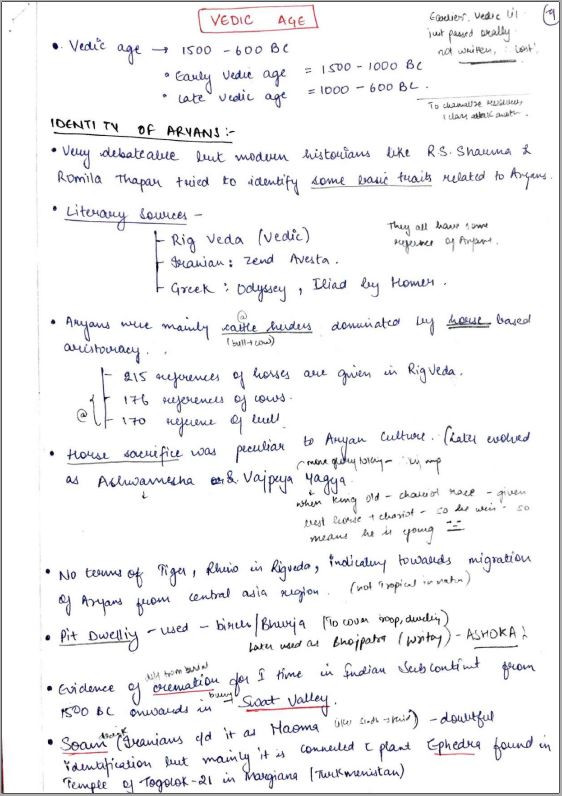 VEDIC AGE
9
Earlier, Vedic lit.
just passed orally
not written,
• Vedic age → 1500 - 600 BC
• Early Vedic age = 1500 - 1000 BC
• Late Vedic age = 1000 - 600 BC.
IDENTITY OF ARYANS:-
• Very debateable but modern historians like R.S. Sharma &
Romila Thapar tried to identify some basic traits related to Aryans.
• Literary Sources -
They all have some
reference of Aryans.
- Rig Veda (Vedic)
- Iranian: Zend Avesta.
- Greek: Odyssey, Iliad by Homer.
• Aryans were mainly cattle herders dominated by horse based
(bull+cow)
aristocracy.
- 215 references of horses are given in RigVeda.
- 176 references of cows.
- 170 reference of bull.
• Horse sacrifice was peculiar to Aryan Culture. (Later evolved
as Ashwamesha & Vajpeya Yagya.
when king old - chariot race - given
best horse + chariot - so he win - so
means he is young
• No terms of Tiger, Rhino in Rigveda, indicating towards migration
of Aryans from central asia region. (not Tropical in nature)
• Pit Dwelling - used - birch/Bhurja (To cover roop, dwelling)
Later used as Bhojpatra (writing) - ASHOKA
• Evidence of cremation for I time in Indian Subcontint from
1500 BC onwards in → Swat Valley.
• Soam (Iranians c/d it as Haoma) - doubtful
identification but mainly it is connected c plant Ephedra found in
Temple of Togolok-21 in Margiana (Turkmenistan)